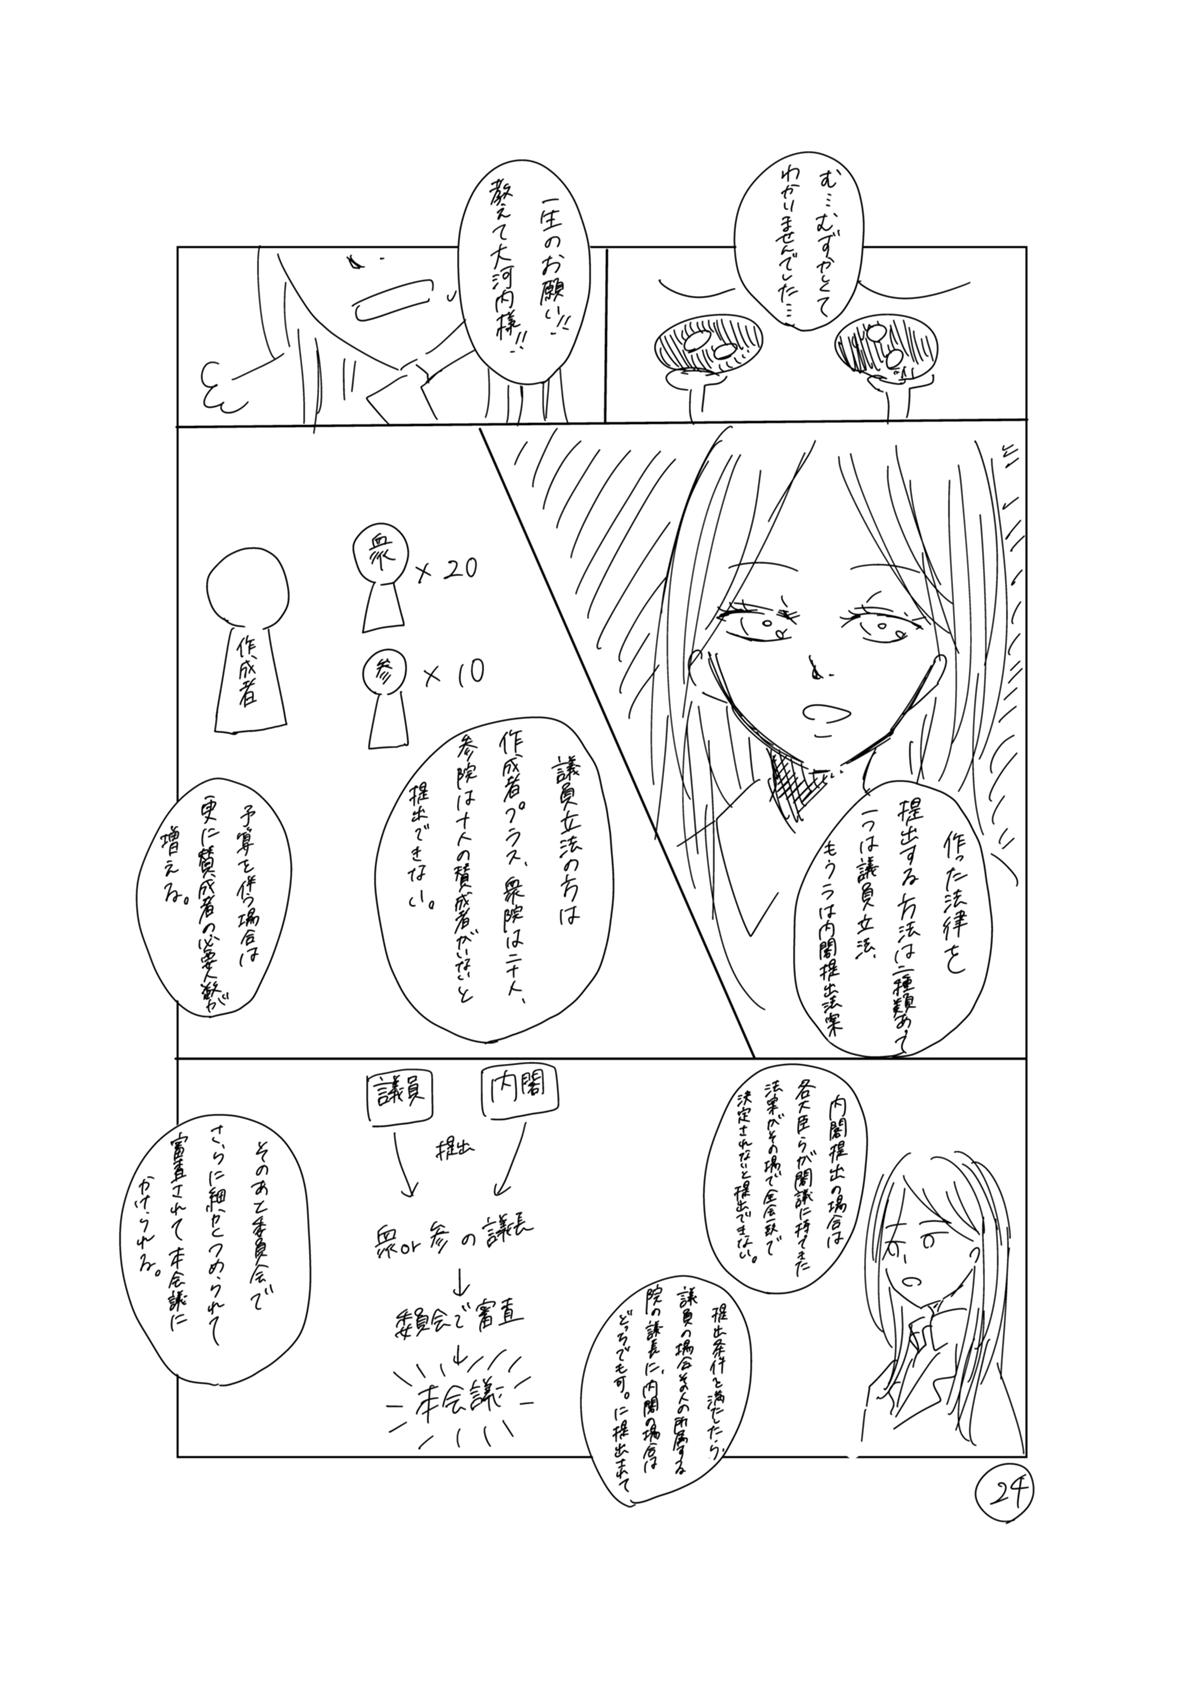 む…むずかしくて
わかりませんでした…
一生のお願い!!
教えて大河内様!!
作った法律を
提出する方法は二種類あって
一つは議員立法、
もう一つは内閣提出法案
衆 × 20
参 × 10
作成者
議員立法の方は
作成者プラス、衆院は二十人、
参院は十人の賛成者がいないと
提出できない。
予算を伴う場合は
更に賛成者の必要人数が
増える。
内閣提出の場合は
各大臣らが閣議に持てきた
法案がその場で全会一致で
決定されないと提出できない。
提出条件を満たしたら、
議員の場合その人の所属する
院の議長に、内閣の場合は
どっちでも可。に提出されて
議員
内閣
提出
衆or参の議長
委員会で審査
本会議
そのあと委員会で
さらに細かくつめられて
審査されて本会議に
かけられる。
24